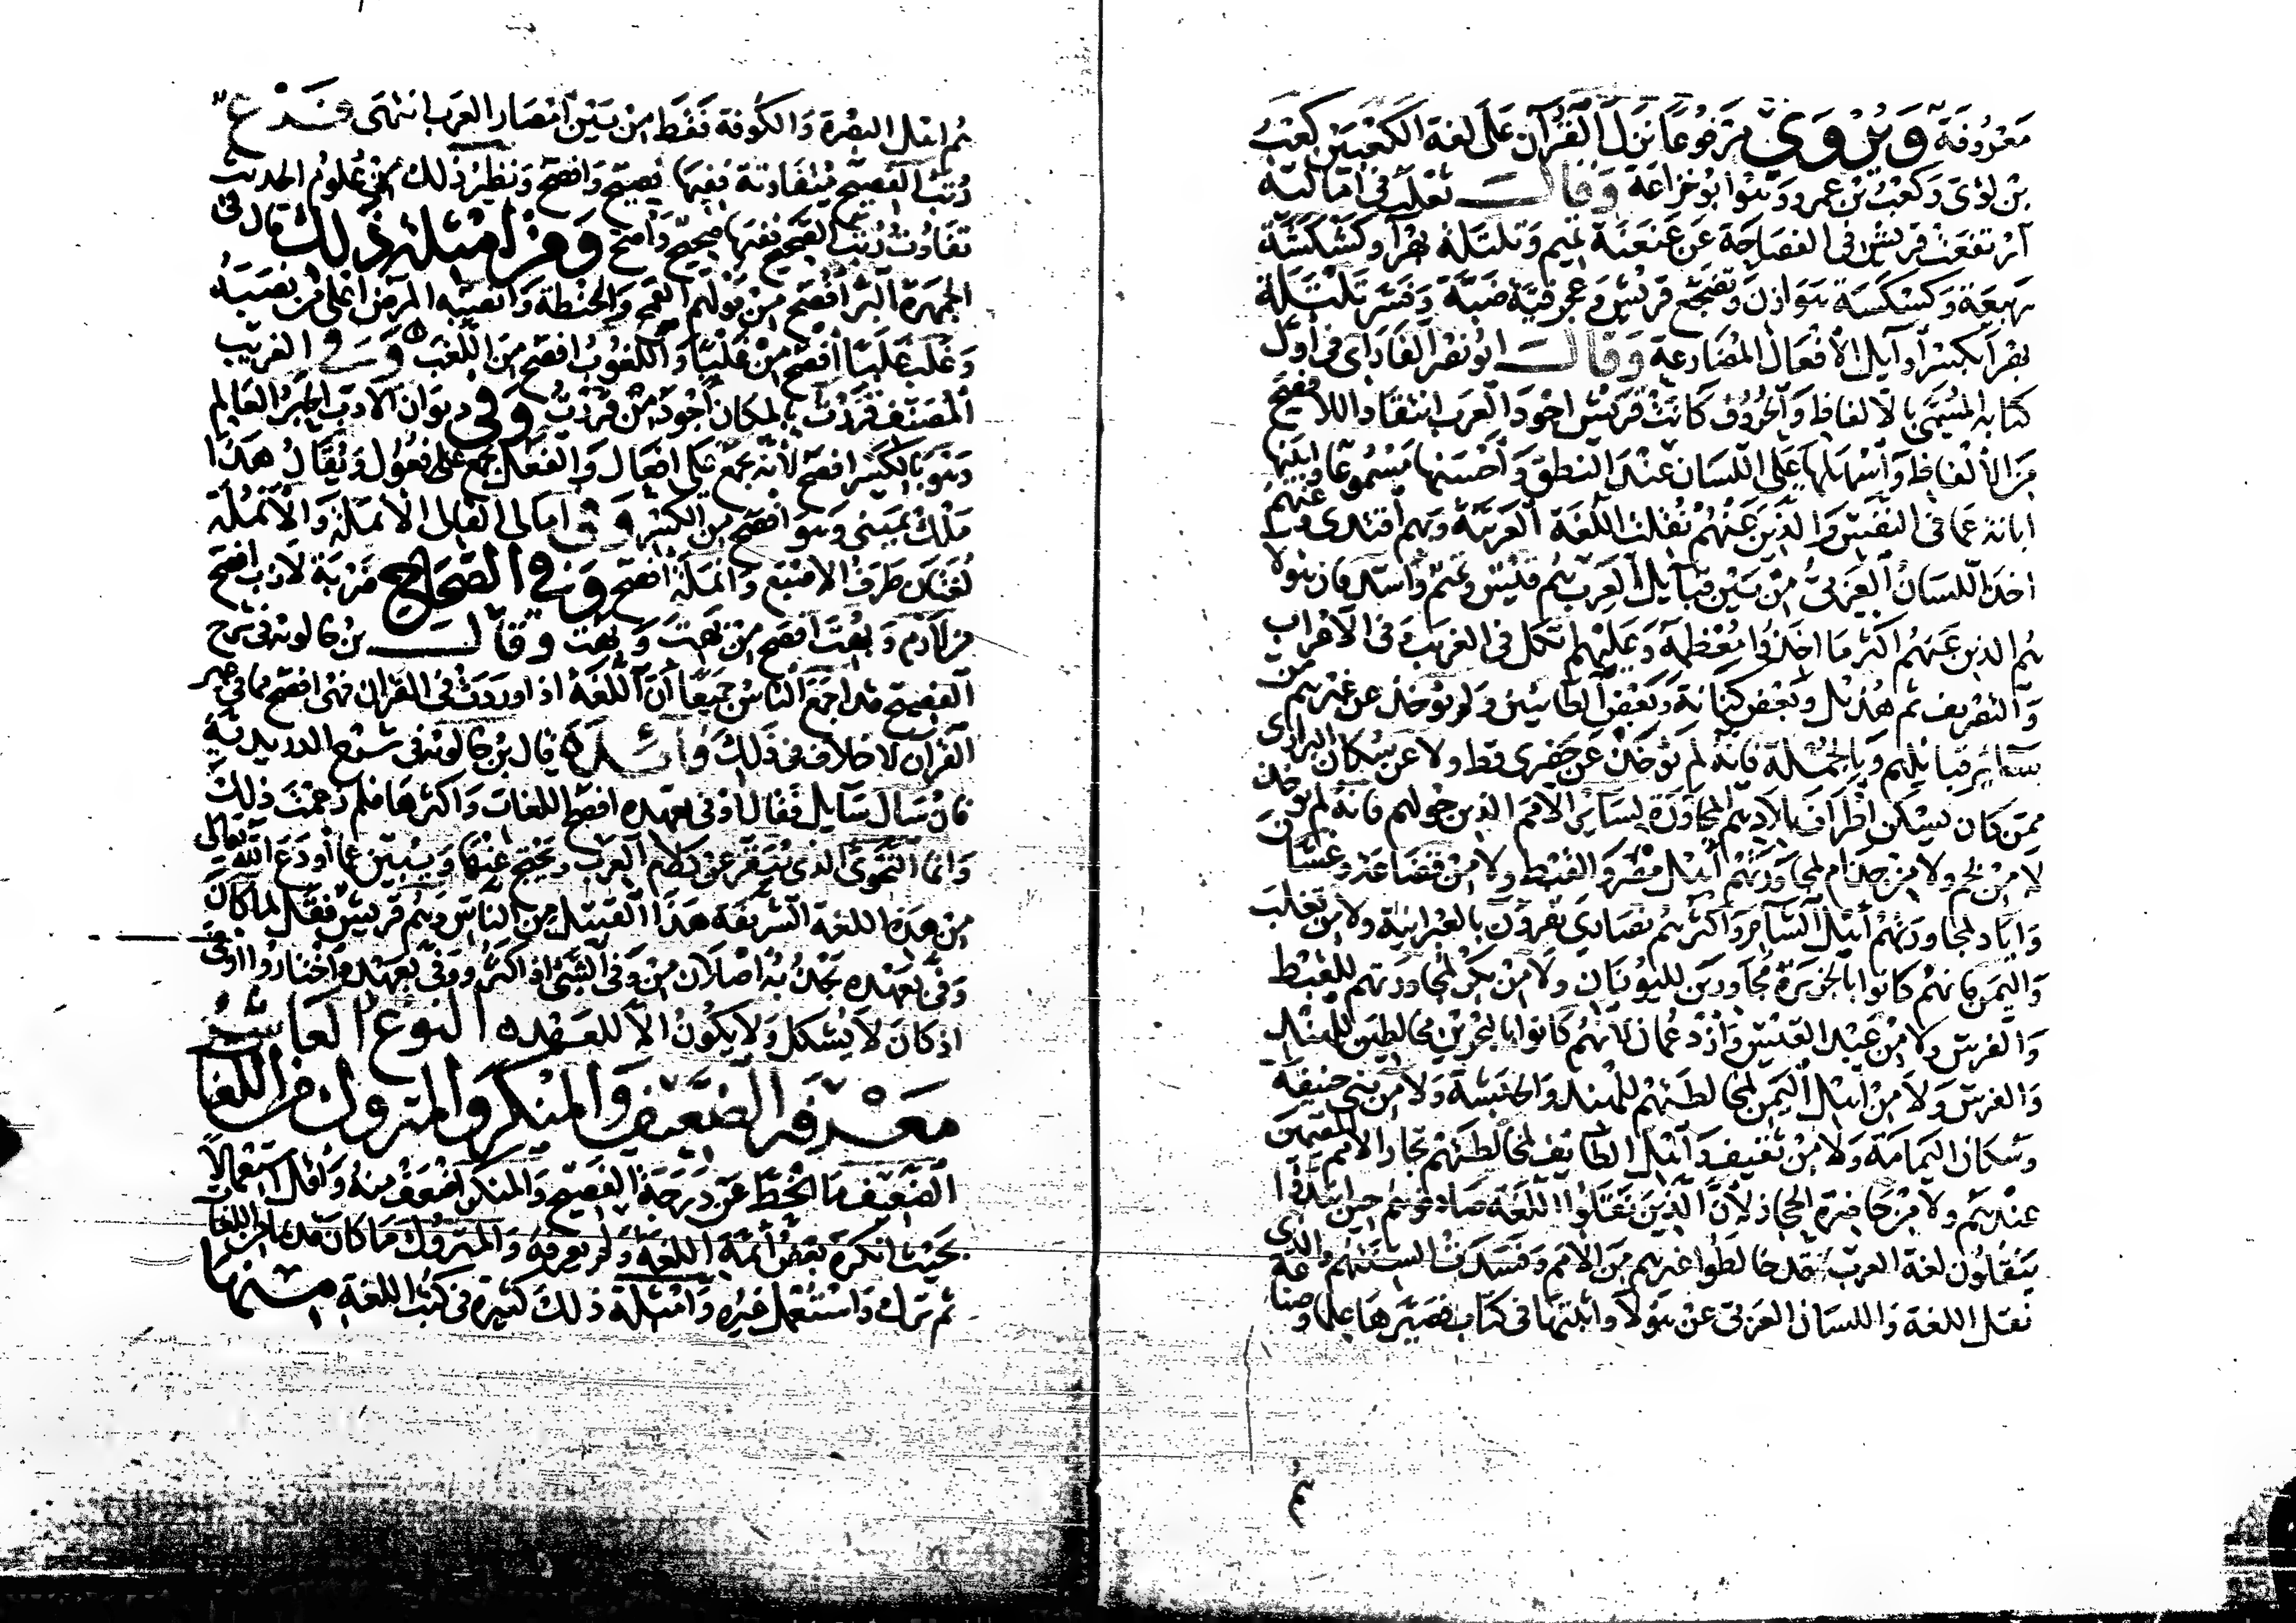 معروفة ويروى مرفوعا نزل القرآن على لغة الكعبين كعب
بن لؤى وكعب بن عمرو وهو ابو خزاعة وقال ثعلب فى اماليه
ارتفعت قريش فى الفصاحة عن عنعنة تميم وتلتلة بهرآ وكشكشة
ربيعة وكسكسة هوازن وتضجع قريش وعجرفية ضبة وفسر تلتلة
بهرآ بكسر اوآيل الافعال المضارعة وقال ابو نصر الفارابى فى اول
كتابه المسمى بالالفاظ والحروف كانت قريش اجود العرب انتقادا للافصح
من الالفاظ واسهلها على اللسان عند النطق واحسنها مسموعا وابينها
ابانة عما فى النفس والذين عنهم نقلت اللغة العربية وبهم اقتدى وعنهم
اخذ اللسان العربى من بين قبآيل العرب هم قيس وتميم واسد فان هولا
هم الذين عنهم اكثر ما اخذ ومعظمه وعليهم اتكل فى الغريب وفى الاعراب
والتصريف ثم هذيل وبعض كنانة وبعض الطائيين ولم يوخذ عن غيرهم من
سآير قبايلهم وبالجملة فانه لم يوخذ عن حضرى قط ولا عن سكان البرارى
ممن كان يسكن اطراف بلادهم المجاورة لسآير الامم الذين حولهم فانه لم يوخذ
لا من لخم ولا من جذام لمجاورتهم اهل مصر والقبط ولا من قضاعة وغسان
واياد لمجاورتهم اهل الشام واكثرهم نصارى يقرون بالعبرانية ولا من تغلب
واليمن فانهم كانوا بالجزيرة مجاورين لليونان ولا من بكر لمجاورتهم للقبط
والفرس ولا من عبد القيس وازد عمان لانهم كانوا بالبحرين مخالطين للهند
والفرس ولا من اهل اليمن لمخالطتهم للهند والحبشة ولا من بنى حنيفة
وسكان اليمامة ولا من ثقيف واهل الطايف لمخالطتهم تجار الامم المقيمين
عندهم ولا من حاضرة الحجاز لان الذين نقلوا اللغة صادفوهم حين ابتدوا
ينقلون لغة العرب قد خالطوا غيرهم من الامم وفسدت السنتهم والذى
نقل اللغة واللسان العربى عن هولآ واثبتها فى كتاب فصيرها علما وصناعة
هم
هم اهل البصرة والكوفة فقط من بين امصار العرب انتهى فرع
رتب الفصيح متفاوتة ففيها فصيح وافصح ونظير ذلك فى علوم الحديث
تفاوت رتب الصحيح ففيها صحيح واصح ومن امثلة ذلك قال فى
الجمهرة البر افصح من قولهم القمح والحنطة وانصبه المرض اعلى من نصبه
وغلب غلبا افصح من غلبا واللغوب افصح من اللغب وفى الغريب
المصنف قررت بالمكان اجود من قررت وفى ديوان الادب الحبر العالم
وهو بالكسر افصح لانه يجمع على افعال والفعل يجمع على فعول ويقال هذا
ملك يمينى وهو افصح من الكسر وفى امالى القالى الانملة والانملة
لغتان طرف الاصبع وانملة افصح وفى الصحاح ضربة لازب افصح
من لازم وبهت افصح من بهت وبهت وقال بن خالويه فى شرح
الفصيح قد اجمع الناس جميعا ان اللغة اذا وردت فى القران فهى افصح مما فى غير
القران لا خلاف فى ذلك فائدة قال بن خالويه فى شرح الدريدية
فان سال سآيل فقال اوفى بعهده افصح اللغات واكثرها فلم زعمت ذلك
وانما النحوى الذى ينقر عن كلام العرب ويحتج عنها ويبين عما اودع الله تعالى
من هذه اللغة الشريفة هذا القبيل من الناس وهم قريش فقل لما كان
وفى بعهده يجذبه اصلان من وفى الشئ اذا كثر ووفى بعهده واختاروا اوفى
اذ كان لا يشكل ولا يكون الا للعهده النوع العاشر
معرفة الضعيف والمنكر والمتروك من اللغات
الضعيف ما انحط عن درجة الفصيح والمنكر اضعف منه واقل استعمالا
بحيث انكره بعض أئمة اللغة ولم يعرفه والمتروك ما كان قديما من اللغات
ثم ترك واستعمل غيره وامثلة ذلك كثيرة فى كتب اللغة منها